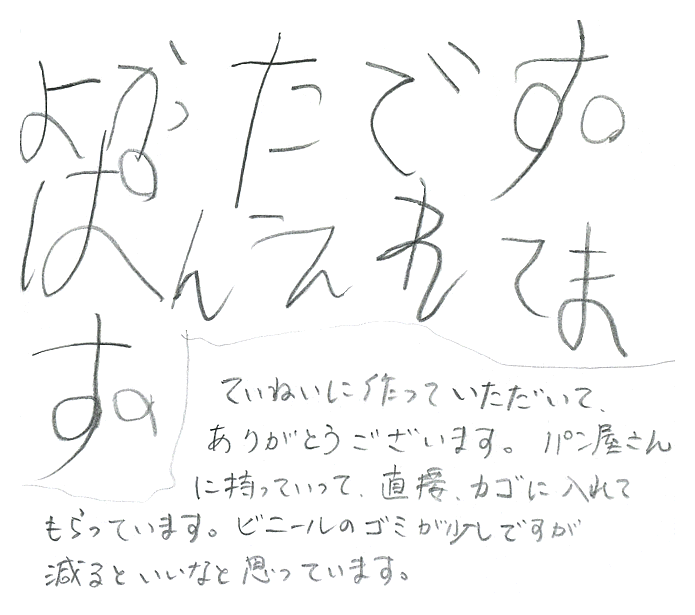 よかったです。
ぱんえれてま
す。
ていねいに作っていただいて、
ありがとうございます。パン屋さん
に持っていって、直接、カゴに入れて
もらっています。ビニールのゴミが少しですが
減るといいなと思っています。